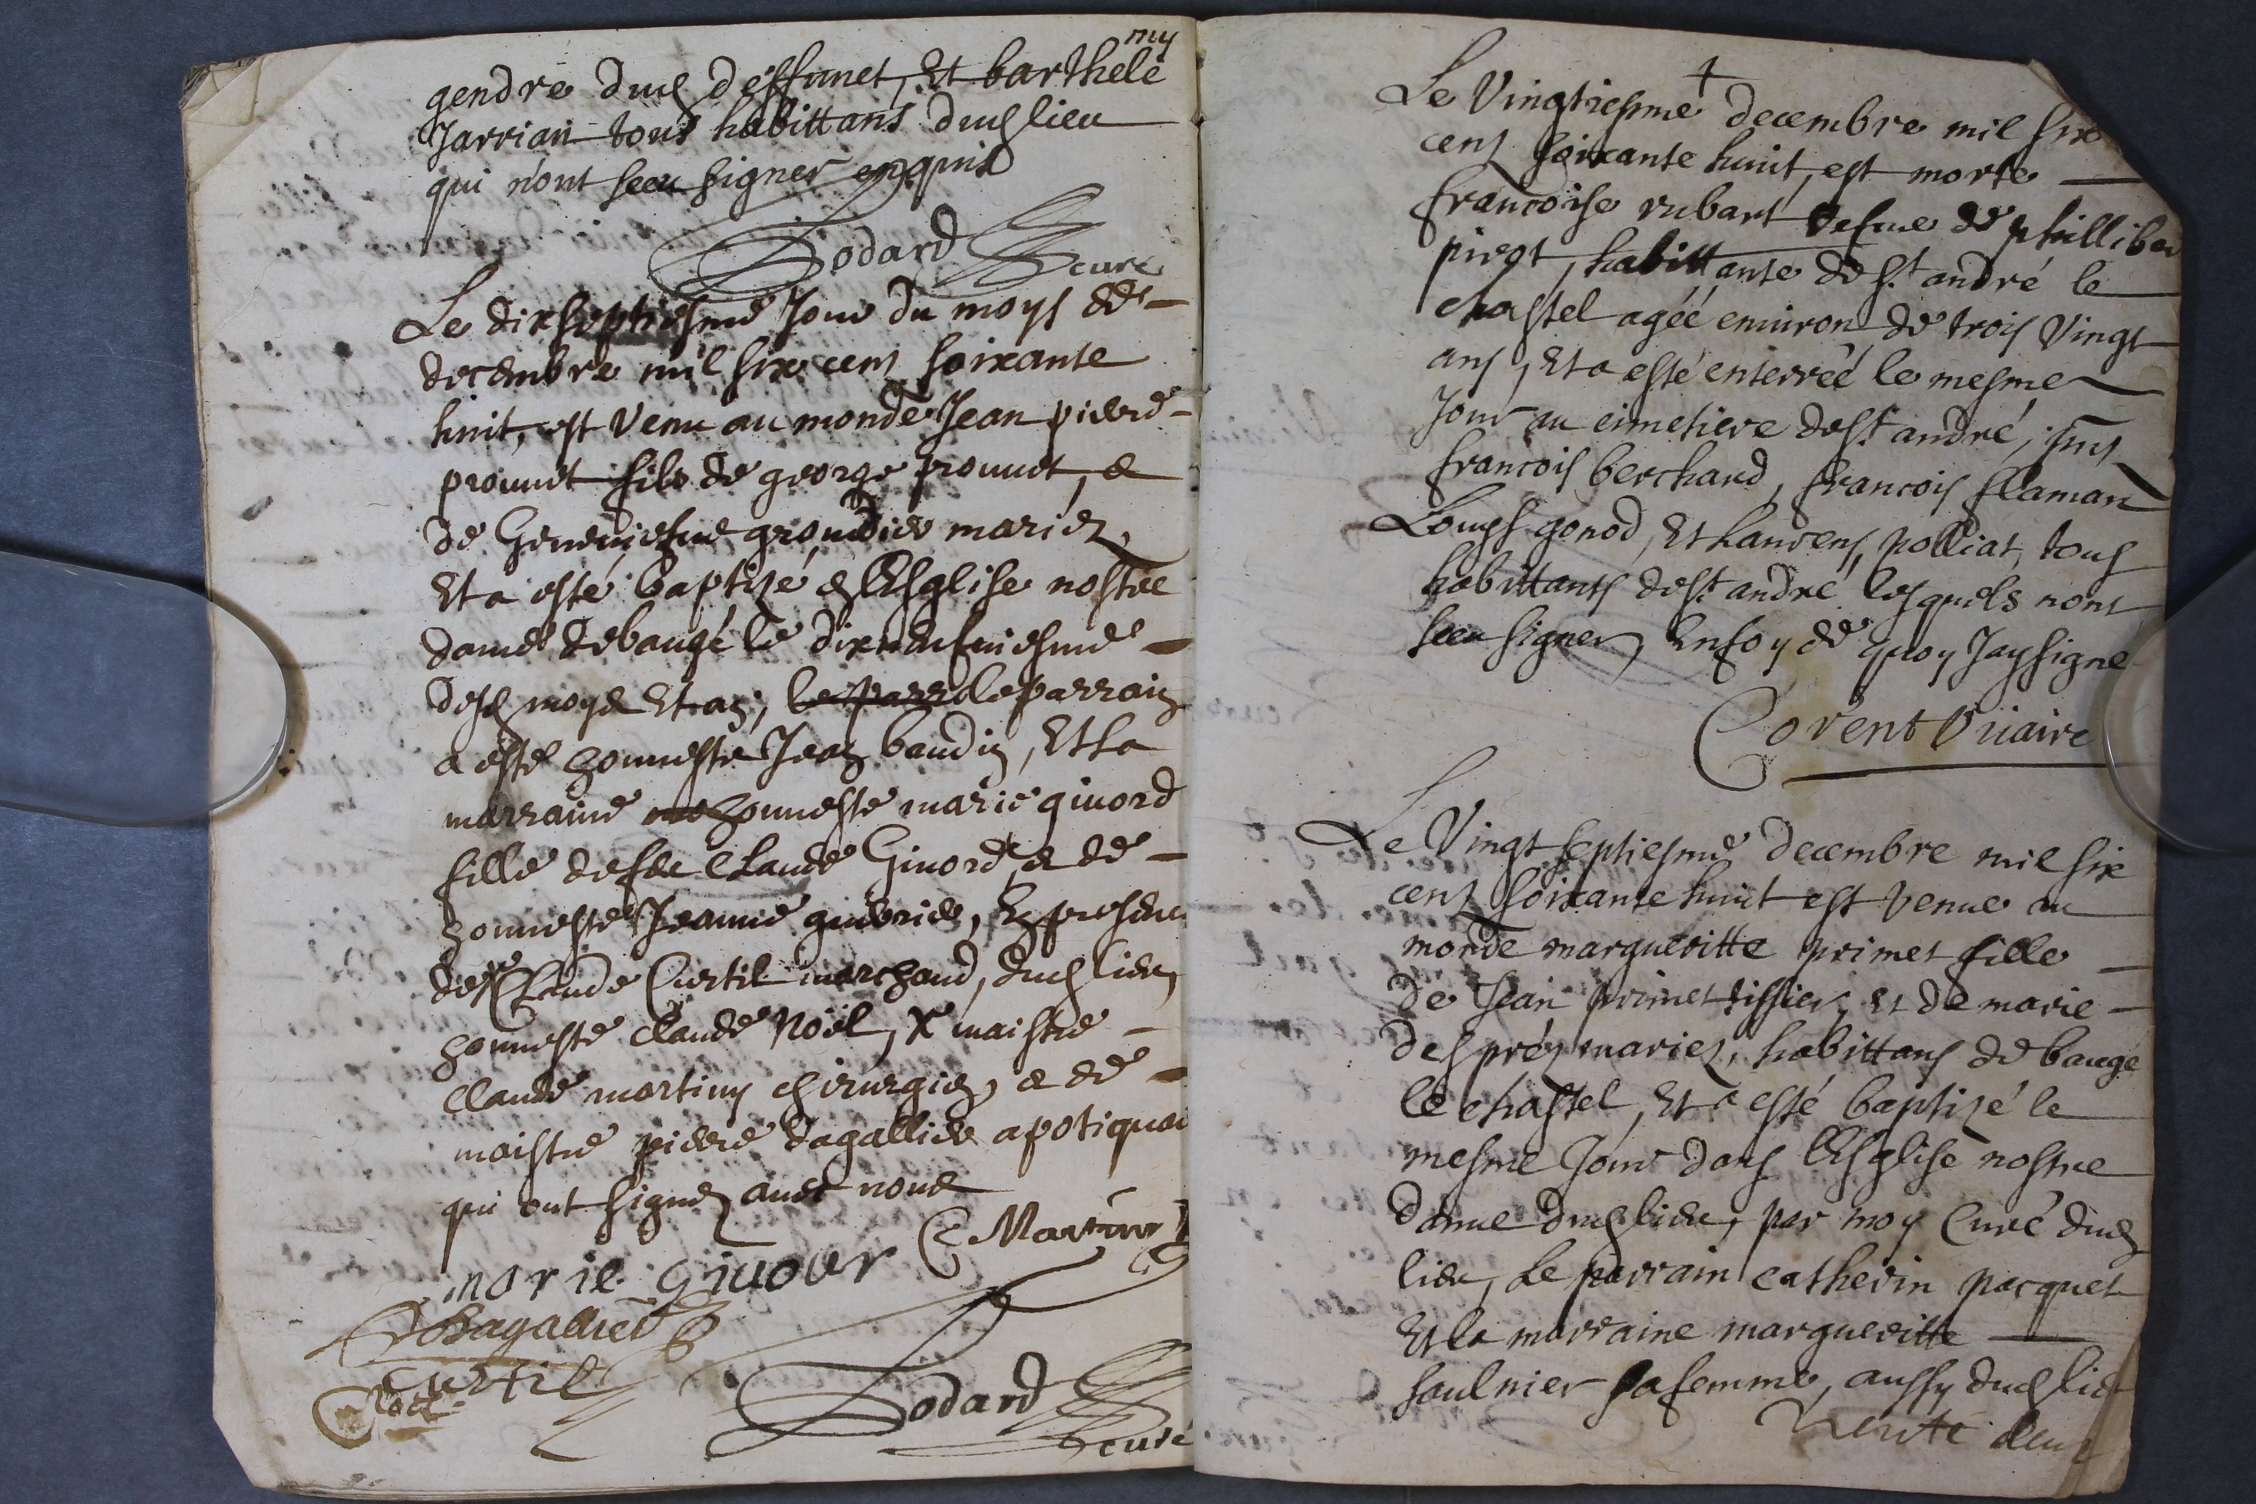 my
gendre dud deffunct, Et barthele
Jarrian tous habittans dud lieu
qui n'ont sceu signer enquis
Bodard
curé
Le dixseptiesme Jour du moys de
decembre mil six cens soixante
huit, est venu au monde Jean pierre
prouuet fils de george prouuet, &
de Geneuiefue grondier mariez,
Et a esté baptizé en lEsglise nostre
dame de baugé le dixneufuiesme
desd moys Et an, le parr le parrain
a esté honneste Jean baudin, Et la
marraine honneste marie giuord
fille de feu Claude Giuord & de
honneste Jeanne guerrier, En presence
de Claude Curtil marchand, dud lieu,
honneste Claude Noël, maistre
Claude martiny chirurgien & de
maistre pierre dagallier apotiquai
qui ont signez auec nous
C Martiny
marie giuour
Dagallier
Curtil
Noel
Bodard
curé
Le Vingtiesme decembre mil six
cens soixante huit, est morte
francoise rubart vefue de philliber
pirot, habittante de St andré le
chastel agéé enuiron de trois Vingt
ans, Et a esté enterréé le mesme
Jour au cimetiere de St andré,
francois berchard, francois flaman
Louys gonod, Et laurens polliat, tous
habittants de St andré lesquels nont
sceu signer, En foy de quoy Jay signe
Corent Vicaire
Le Vingt septiesme decembre mil six
cens soixante huit est venue au
monde marguerittte primet fille
de Jean primet tissier, Et de marie
des préz mariez, habittans de bauge
le chastel, Et a esté baptizé le
mesme Jour dans lEsglise nostre
dame dud lieu, par moy Curé dud
lieu, Le parrain catherin pacquet
Et la marraine margueritte
saulnier sa femme, aussy dud lieu